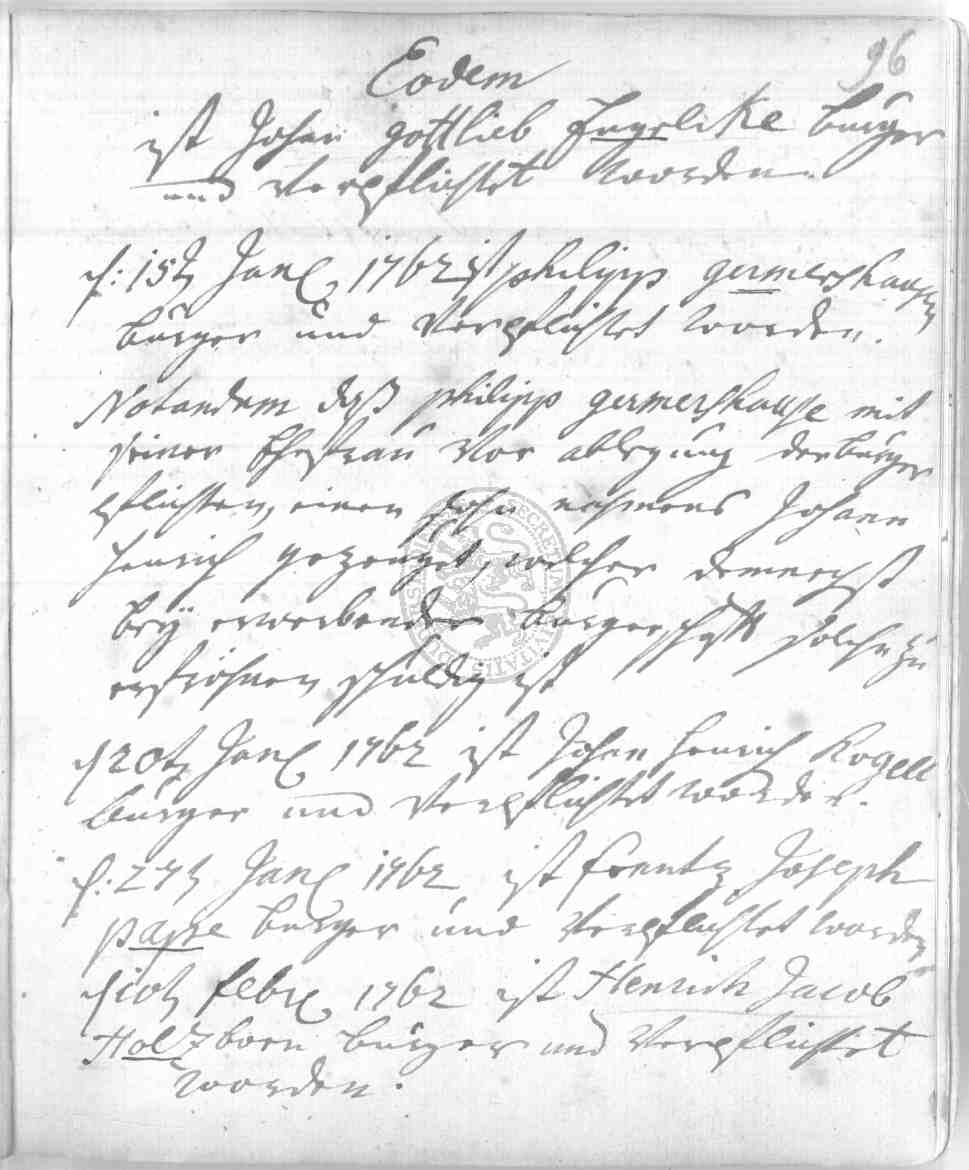 96
Eodem
ist Johan Gottlieb Engelike bürger
und Verpflichtet worden.
d: 15t Jan 1762 ist philipp germershausen
bürger und Verpflichtet worden.
Notandum daß philipp germershause mit
seiner Ehefrau Vor ablegung der bürger
pflichten, einen sohn nahmens Johann
Henrich gezeuget, welcher demnechst
bey erwerbender bürgerschafft solche zu
schuldig ist
d 20t Jan 1762 ist Johan Henrich Kogell
bürger und Verpflichtet worden.
d: 27t Jan 1762 ist Frantz Joseph
pape bürger und Verpflichtet worden
d 10t febr 1762 ist Henrich Jacob
Holzborn bürger und Verpflichtet
worden.